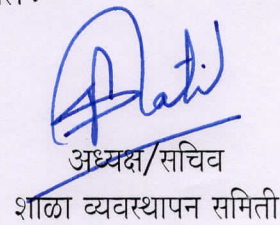 अध्यक्ष/सचिव
शाळा व्यवस्थापन समिती